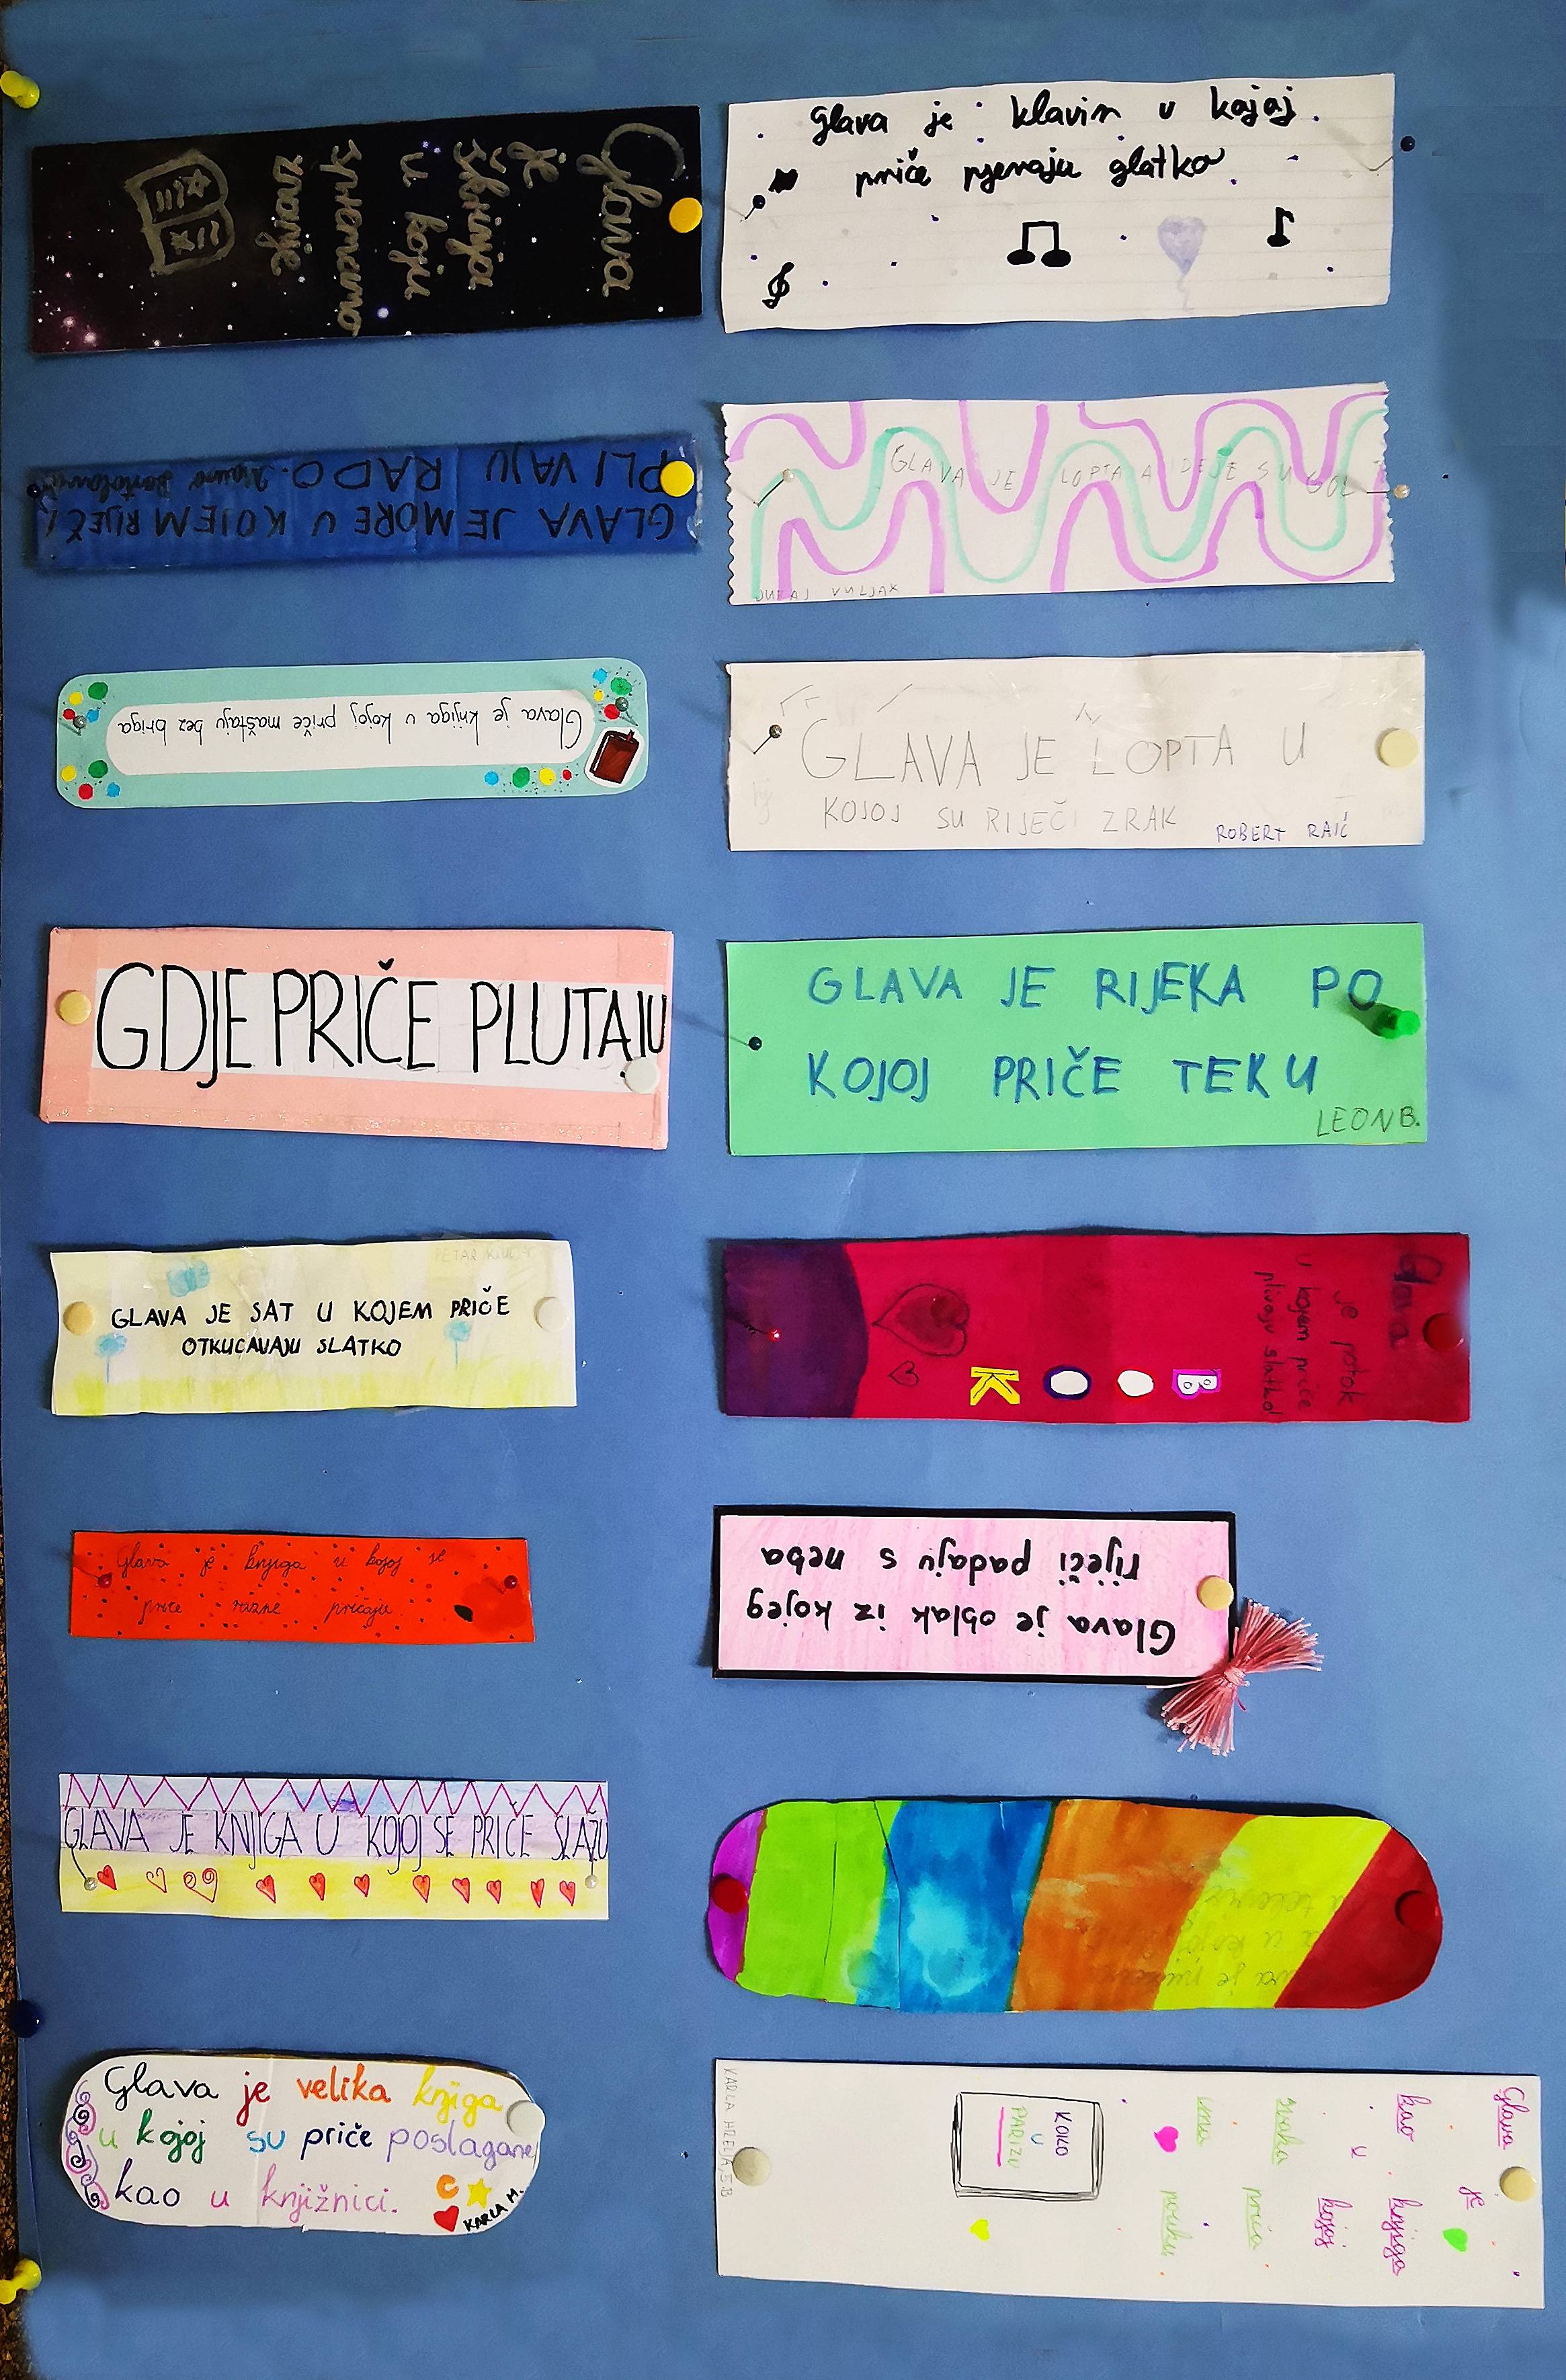 Glava
je
škrinja
u koju
spremamo
znanje
GLAVA JE MORE U KOJEM RIJEČI
PLIVAJU RADO.
Glava je knjiga u kojoj priče maštaju bez briga
GDJE PRIČE PLUTAJU
GLAVA JE SAT U KOJEM PRIČE
OTKUCAVAJU SLATKO
Glava je knjiga u kojoj se
priče razne pričaju
GLAVA JE KNJIGA U KOJOJ SE PRIČE SLAŽU
Glava je velika knjiga
u kojoj su priče poslagane
kao u knjižnici.
KARLA M.
Glava je klavir u kojaj
priče pjevaju glatko
GLAVA JE LOPTA A IDEJE SU GOL
JURAJ VULJAK
GLAVA JE LOPTA U
KOJOJ SU RIJEČI ZRAK
ROBERT RAIĆ
GLAVA JE RIJEKA PO
KOJOJ PRIČE TEKU
LEON B.
Glava
je potok
u kojem priče
plivaju slatko!
BOOK
Glava je oblak iz kojeg
riječi padaju s neba
Glava je
kao knjiga
u kojoj
svaka priča
ima poruku
KOKO
U
PARIZU